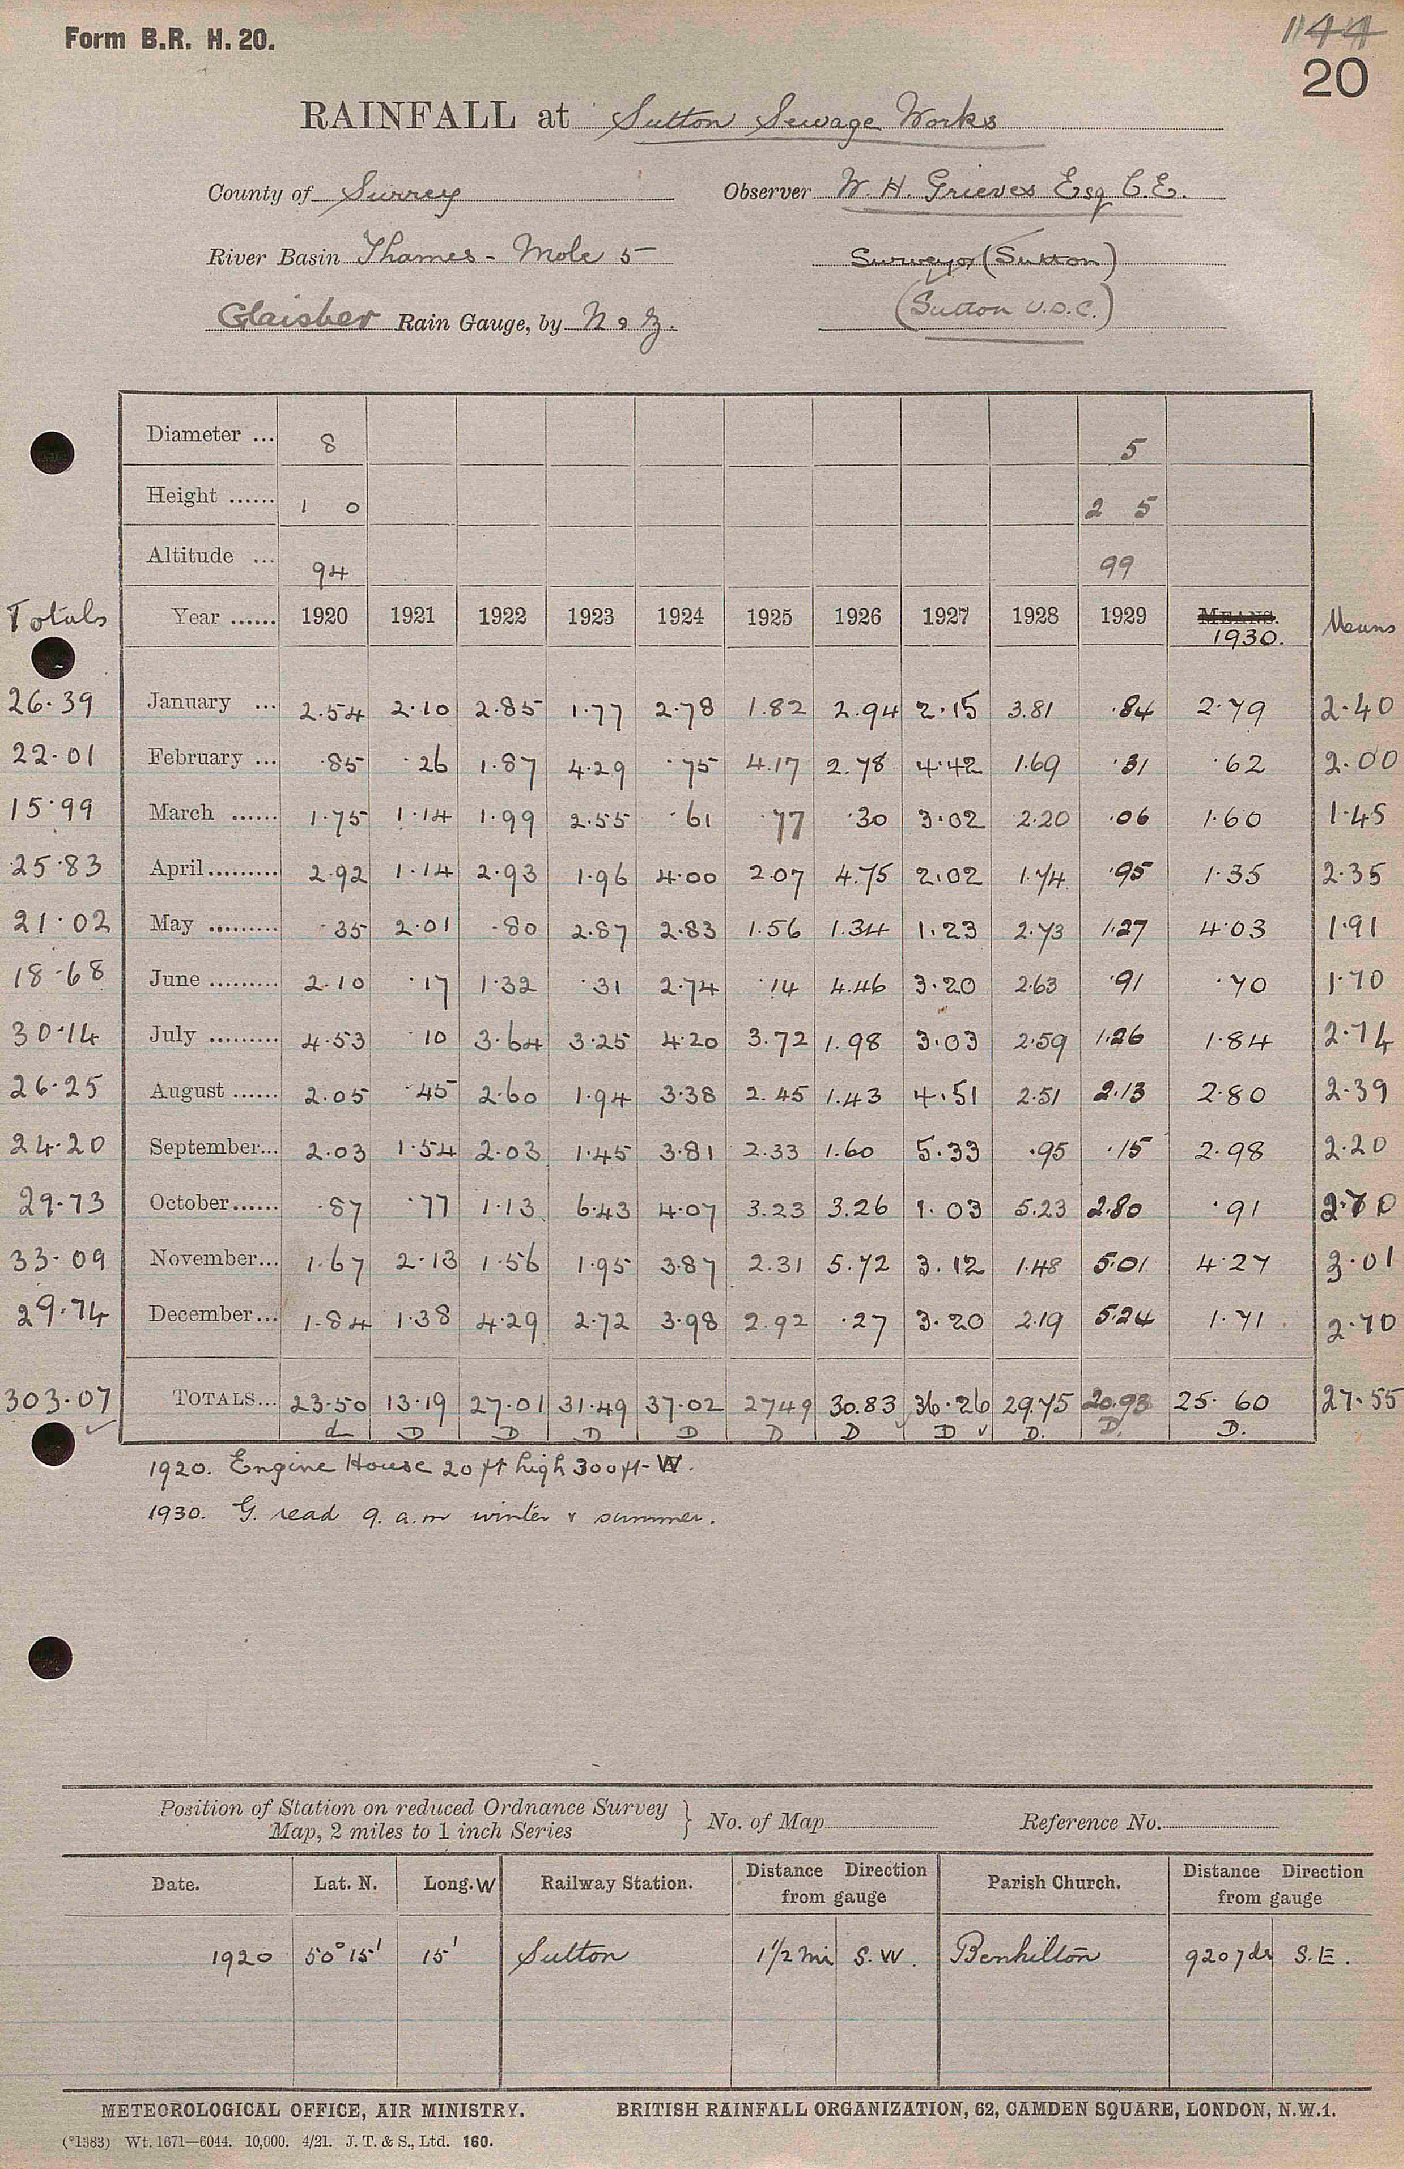 Form B.R. H. 20.
144
20
RAINFALL at Sutton Sewage Works
County of Surrey Observer W. H. Grieves Esq C.E.
River Basin Thames - Mole 5 Surveyor (Sutton)
Glaisher Rain Gauge, by N & Z. (Sutton U.D.C.)
Diameter ... 8 5
Height ...... 1 0 2 5
Altitude ... 94 99
Totals Year ...... 1920 1921 1922 1923 1924 1925 1926 1927 1928 1929 MEANS. 1930. Means
26.39 January ... 2.54 2.10 2.85 1.77 2.78 1.82 2.94 2.15 3.81 .84 2.79 2.40
22.01 February ... .85 .26 1.87 4.29 .75 4.17 2.78 4.42 1.69 .31 .62 2.00
15.99 March ...... 1.75 1.14 1.99 2.55 .61 .77 .30 3.02 2.20 .06 1.60 1.45
25.83 April ......... 2.92 1.14 2.93 1.96 4.00 2.07 4.75 2.02 1.74 .95 1.35 2.35
21.02 May ......... .35 2.01 .80 2.87 2.83 1.56 1.34 1.23 2.73 1.27 4.03 1.91
18.68 June ......... 2.10 .17 1.32 .31 2.74 .14 4.46 3.20 2.63 .91 .70 1.70
30.14 July ......... 4.53 10 3.64 3.25 4.20 3.72 1.98 3.03 2.59 1.26 1.84 2.74
26.25 August ...... 2.05 .45 2.60 1.94 3.38 2.45 1.43 4.51 2.51 2.13 2.80 2.39
24.20 September... 2.03 1.54 2.03 1.45 3.81 2.33 1.60 5.33 .95 .15 2.98 2.20
29.73 October...... .87 .77 1.13 6.43 4.07 3.23 3.26 1.03 5.23 2.80 .91 2.70
33.09 November... 1.67 2.13 1.56 1.95 3.87 2.31 5.72 3.12 1.48 5.01 4.27 3.01
29.74 December... 1.84 1.38 4.29 2.72 3.98 2.92 .27 3.20 2.19 5.24 1.71 2.70
303.07 TOTALS... 23.50 13.19 27.01 31.49 37.02 27.49 30.83 36.26 29.75 20.93 25.60 27.55
d D D D D D D D D. D. D.
1920. Engine House 20 ft high 300 ft - W.
1930. G. read 9. a.m winter & summer.
Position of Station on reduced Ordnance Survey
Map, 2 miles to 1 inch Series } No. of Map Reference No.
Date. Lat. N. Long. W Railway Station. Distance Direction from gauge Parish Church. Distance Direction from gauge
1920 50° 15' 15' Sutton 1 1/2 mi S. W. Benhilton 920 yds S. E.
METEOROLOGICAL OFFICE, AIR MINISTRY. BRITISH RAINFALL ORGANIZATION, 62, CAMDEN SQUARE, LONDON, N.W.1.
(*1383) Wt. 1671—6044. 10,000. 4/21. J. T. & S., Ltd. 160.